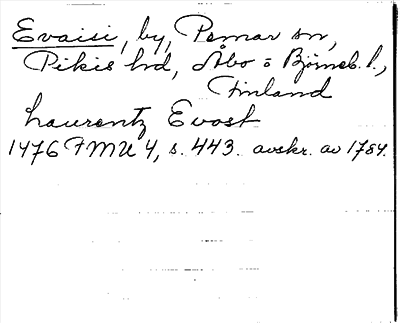 Evaisi, by, Pemar sn,
Pikis hd, Åbo = Björneb. l.,
Finland
Laurentz Evast
1476 FMU 4, s. 443. avskr. av 1784.